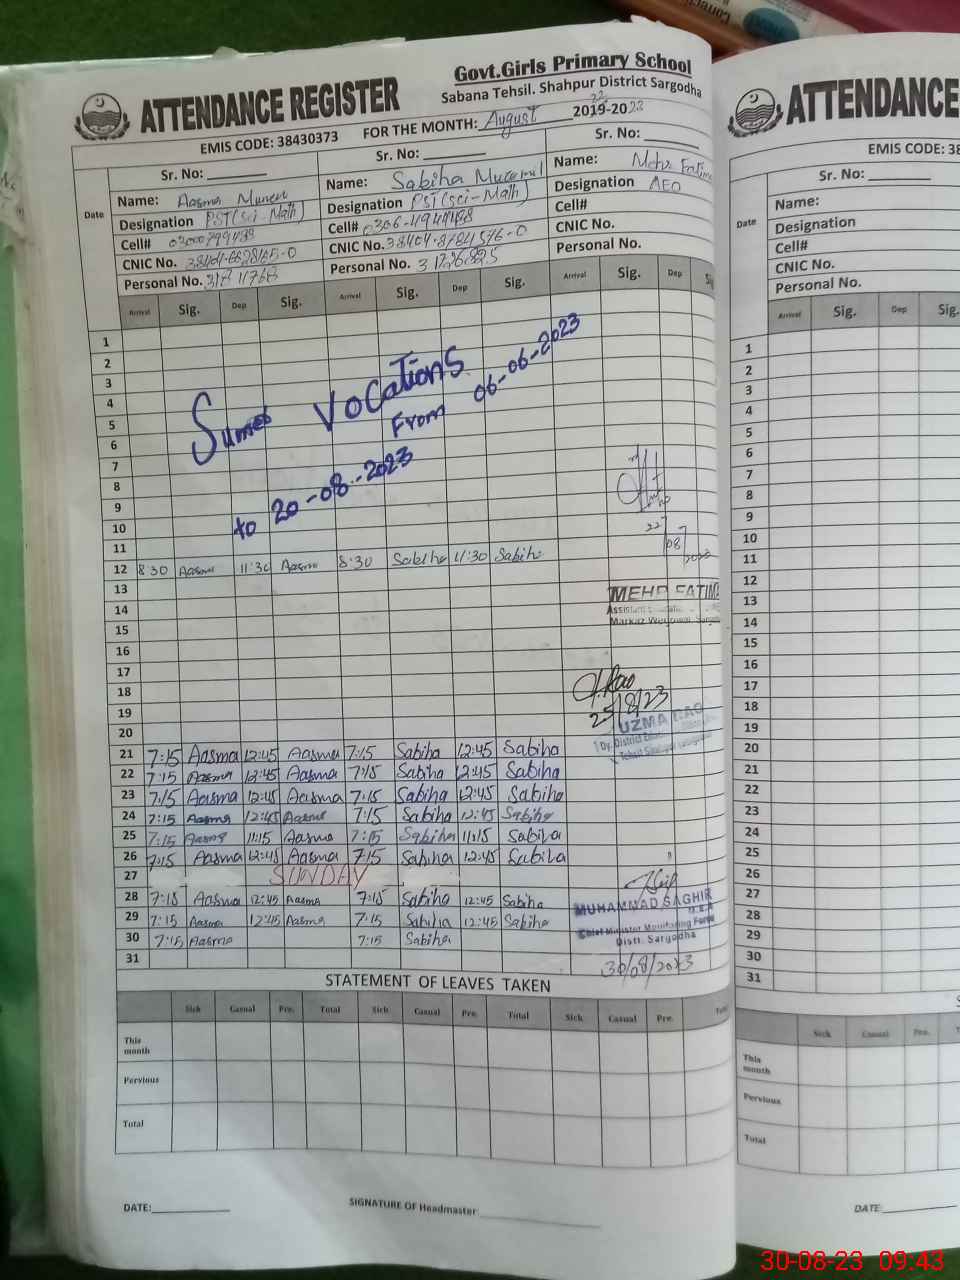 Govt.Girls Primary School
ATTENDANCE REGISTER
Sabana Tehsil. Shahpur District Sargodha
EMIS CODE: 38430373 FOR THE MONTH: August 2019-2023
22
Sr. No: Sr. No: Sr. No:
Date
Name: Aasma Name: Sabiha Name: Mehr Fatima
Designation PST(Sci-Math) Designation PST(Sci-Math) Designation AEO
Cell# Cell# Cell#
CNIC No. CNIC No. CNIC No.
Personal No. Personal No. Personal No.
Arrival Sig. Dep Sig. Arrival Sig. Dep Sig. Arrival Sig. Dep
1
2
3
4
5
6
7
8
9
10
11
Sumer Vocations
From 06-06-2023
to 20-08-2023
22/08/2023
12 8:30 Aasma 11:30 Aasma 8:30 Sabiha 11:30 Sabiha
13
14
15
16
17
18
19
20
MEHR FATIMA
25/8/23
UZMA RAO
21 7:15 Aasma 12:45 Aasma 7:15 Sabiha 12:45 Sabiha
22 7:15 Aasma 12:45 Aasma 7:15 Sabiha 12:45 Sabiha
23 7:15 Aasma 12:45 Aasma 7:15 Sabiha 12:45 Sabiha
24 7:15 Aasma 12:45 Aasma 7:15 Sabiha 12:45 Sabiha
25 7:15 Aasma 11:15 Aasma 7:15 Sabiha 11:15 Sabiha
26 7:15 Aasma 12:45 Aasma 7:15 Sabiha 12:45 Sabiha
27 SUNDAY
28 7:15 Aasma 12:45 Aasma 7:15 Sabiha 12:45 Sabiha
29 7:15 Aasma 12:45 Aasma 7:15 Sabiha 12:45 Sabiha
30 7:15 Aasma 7:15 Sabiha
31
MUHAMMAD SAGHIR
Chief Minister Monitoring Force
Distt. Sargodha
30/08/2023
STATEMENT OF LEAVES TAKEN
Sick Casual Pre. Total Sick Casual Pre. Total Sick Casual Pre.
This month
Pervious
Total
DATE: SIGNATURE OF Headmaster:
ATTENDANCE
EMIS CODE: 38
Sr. No:
Date
Name:
Designation
Cell#
CNIC No.
Personal No.
Arrival Sig. Dep Sig.
1
2
3
4
5
6
7
8
9
10
11
12
13
14
15
16
17
18
19
20
21
22
23
24
25
26
27
28
29
30
31
Sick Casual Pre.
This month
Pervious
Total
DATE:
30-08-23 09:43